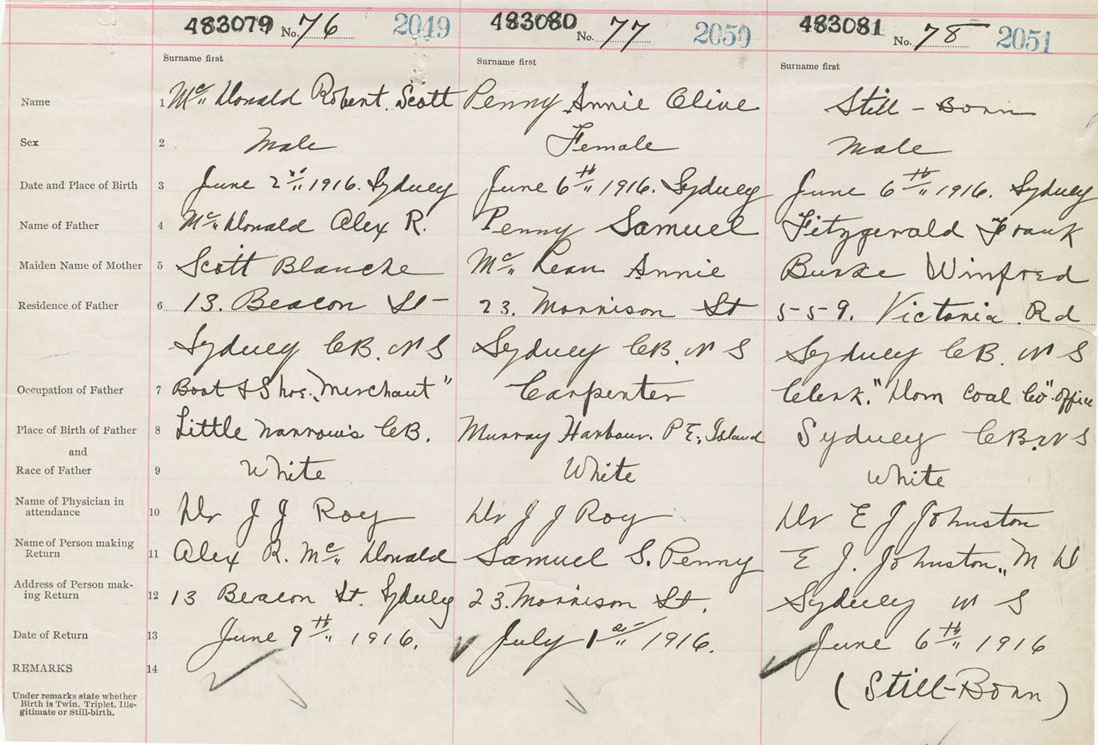 483079 No. 76 2049 483080 No. 77 2050 483081 No. 78 2051
Surname first Surname first Surname first
Name 1 Mc Donald Robert. Scott Penny Annie Olive Still-Born
Sex 2 Male Female Male
Date and Place of Birth 3 June 2nd 1916. Sydney June 6th 1916. Sydney June 6th 1916. Sydney
Name of Father 4 Mc Donald Alex R. Penny Samuel Fitzgerald Frank
Maiden Name of Mother 5 Scott Blanche Mc Lean Annie Burke Winfred
Residence of Father 6 13. Beacon St 23. Morrison St 5-5-9. Victoria Rd
Sydney CB. N S Sydney CB. N S Sydney CB. N S
Occupation of Father 7 Boot & Shoe. Merchant" Carpenter Clerk. "Dom Coal Co" Office
Place of Birth of Father 8 Little Narrow's CB. Murray Harbour. P E, Island Sydney CB N S
and
Race of Father 9 White White White
Name of Physician in
attendance 10 Dr J J Roy Dr J J Roy Dr E J Johnston
Name of Person making
Return 11 Alex R. Mc Donald Samuel S. Penny E J. Johnston, M D
Address of Person mak-
ing Return 12 13 Beacon St. Sydney 23. Morrison St. Sydney N S
Date of Return 13 June 9th 1916. July 1st 1916. June 6th 1916
REMARKS 14 (Still-Born)
Under remarks state whether
Birth is Twin, Triplet, Ille-
gitimate or Still-birth.